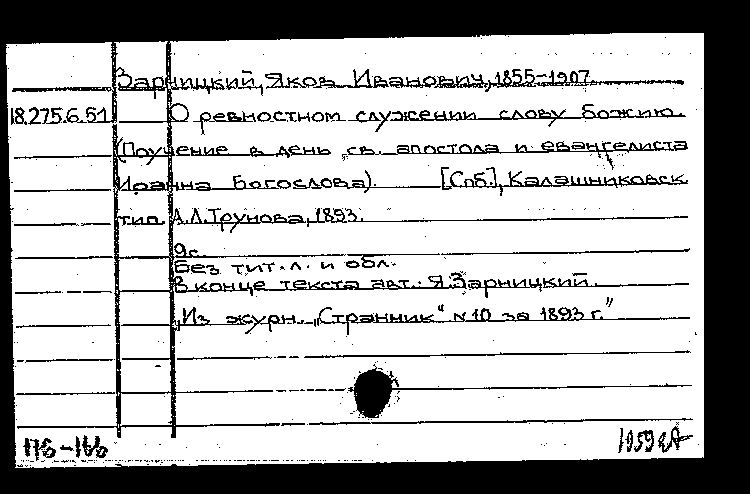 Зарницкий, Яков Иванович, 1855-1907.
18.275.6.51 О ревностном служении слову божию.
(Поучение в день св. апостола и евангелиста
Иоанна Богослова). [Спб.], Калашниковск.
тип. А.Л.Трунова, 1893.
9с.
Без тит. л. и обл.
В конце текста авт.: Я.Зарницкий.
„Из журн. „Странник“ № 10 за 1893 г.”